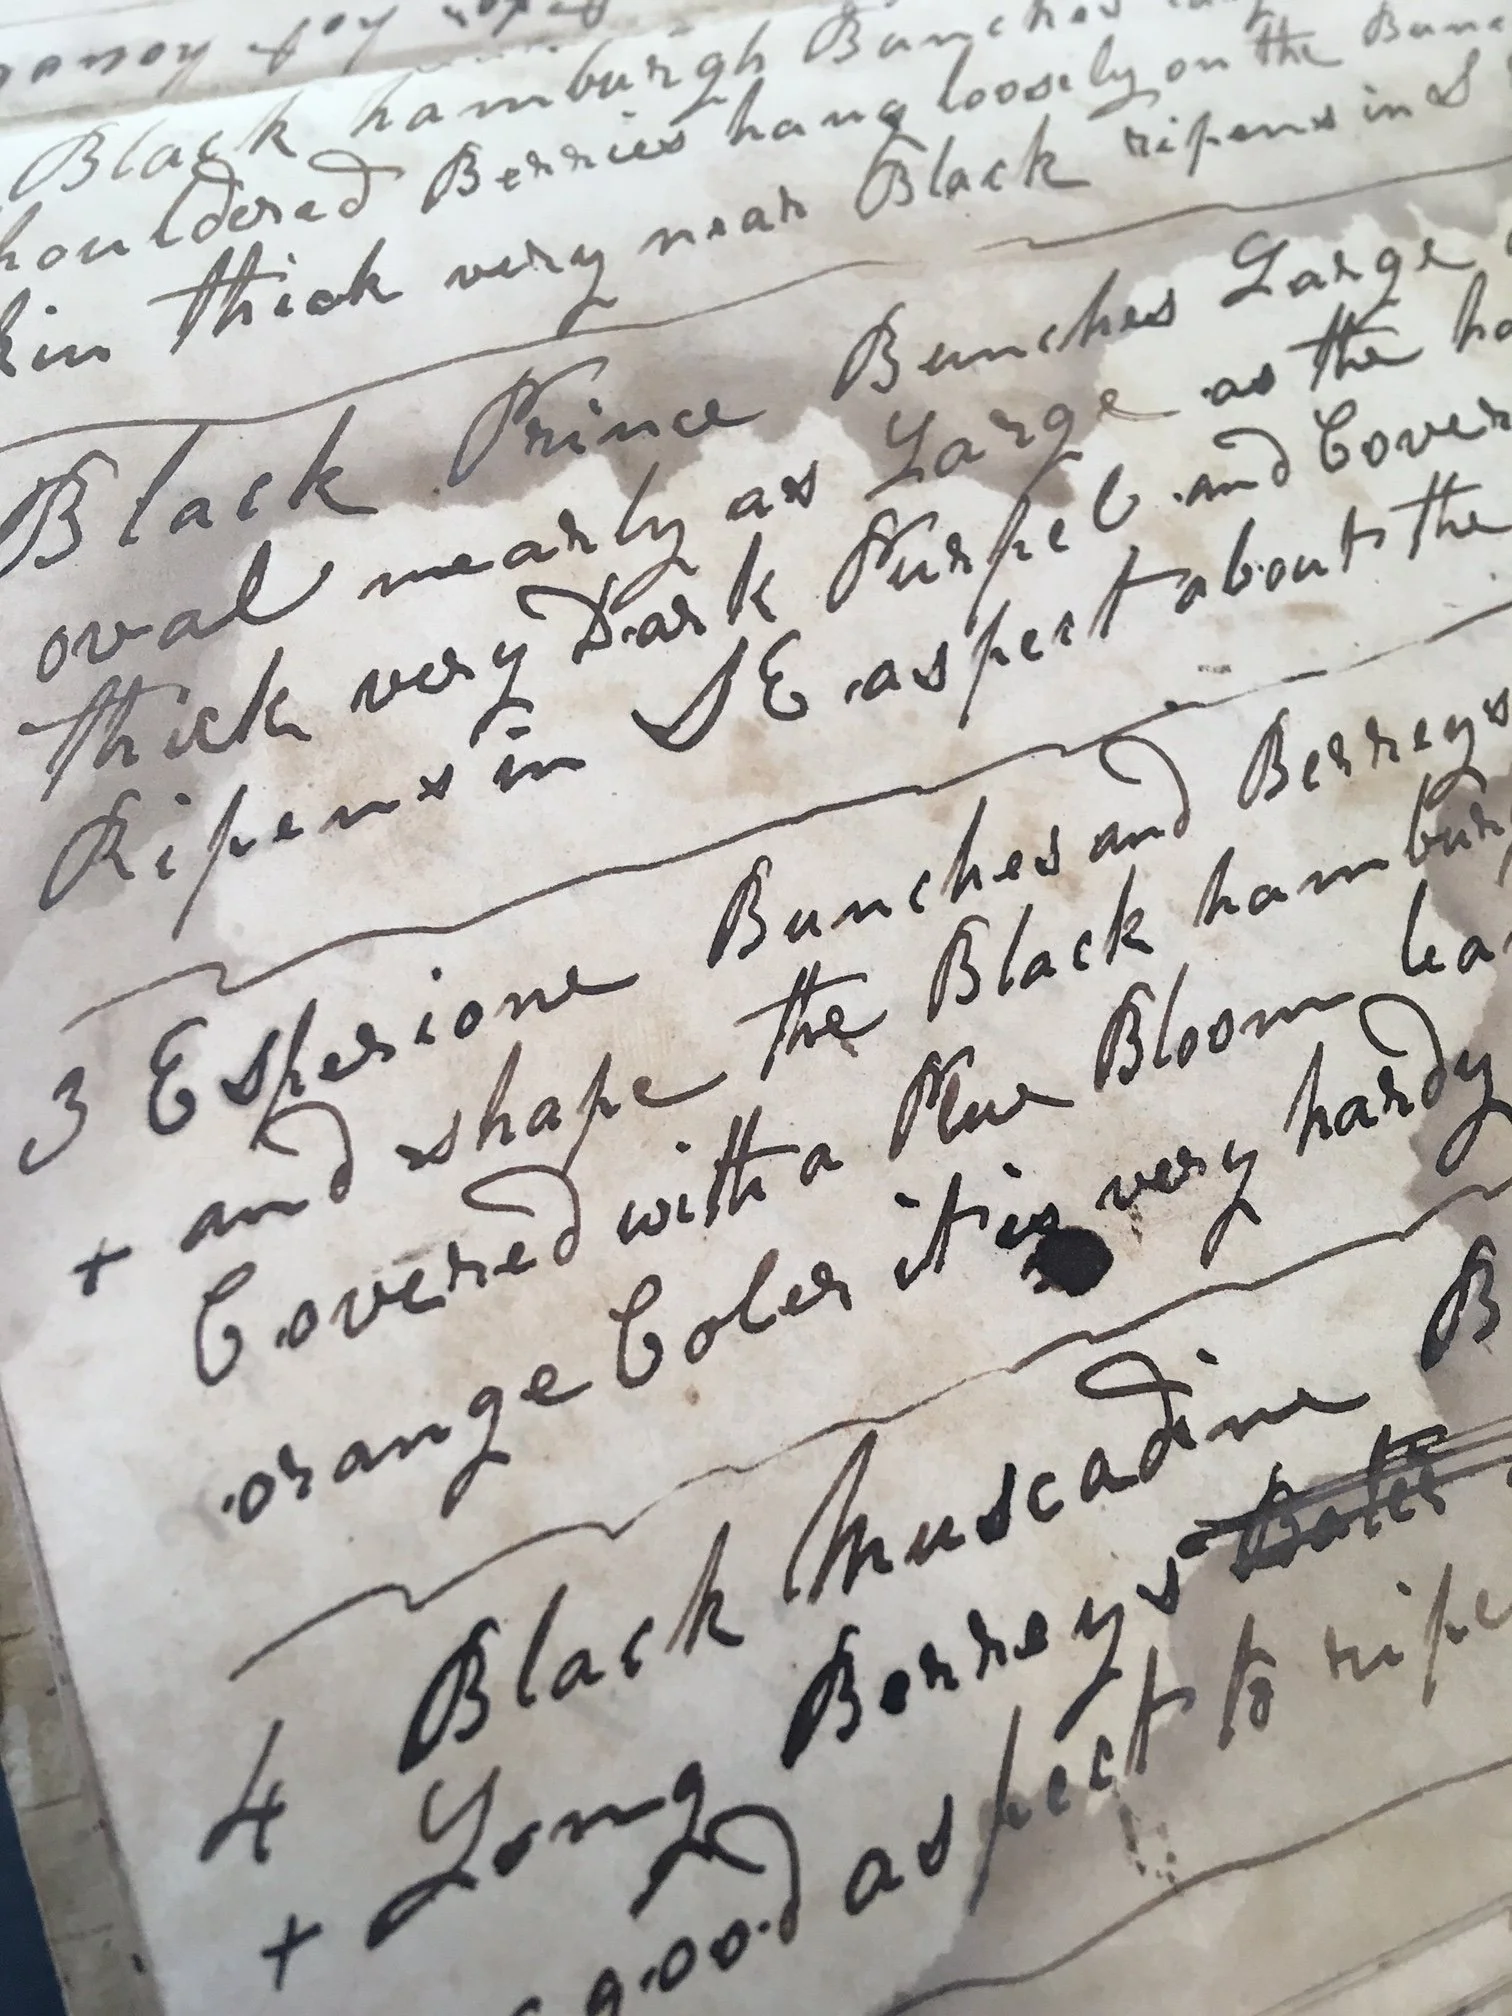 Black hamburgh Bunches
houldered Berries hang loosely on the Bun
kin thick very near Black ripens in S
Black Prince Bunches Large
oval nearly as Large as the ha
thick very Dark Purpel and Cover
Ripens in S E aspect about the
3 Esperione Bunches and Berreys
+ and shape the Black hambur
Covered with a Blue Bloom lea
orange Coler it is very hardy
4 Black Muscadine B
+ Long Berreys
good aspect to ripe